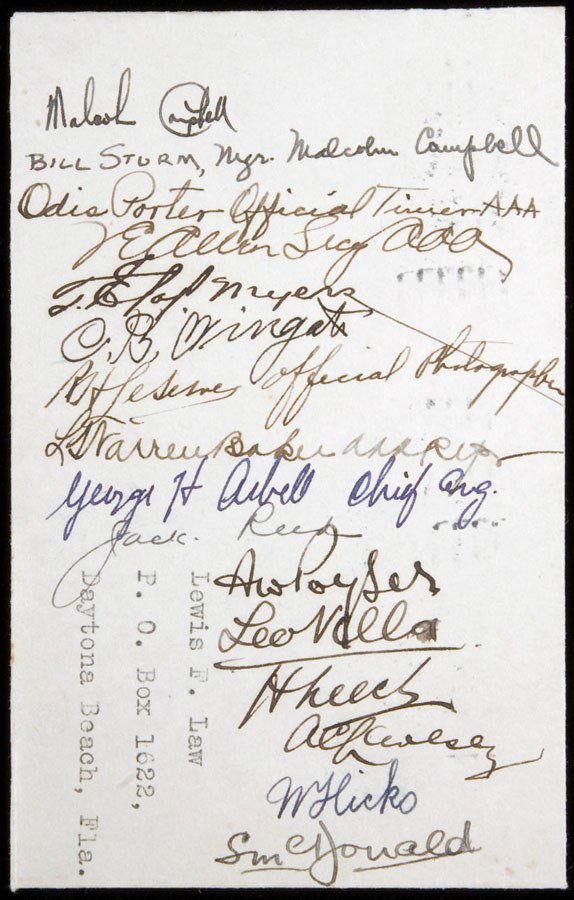 Malcolm Campbell
BILL STURM, Mgr. Malcolm Campbell
Odis Porter Official Timer AAA
T. E. "Pop" Myers
C. B. Wingate
R H LeSesne official Photographer
L Warren Baker AAA Rep
George H Asbell Chief Eng.
Jack. Reed
A W Poyser
Leo Villa
H Leech
W Hicks
S McDonald
Lewis F. Law
P. O. Box 1622,
Daytona Beach, Fla.